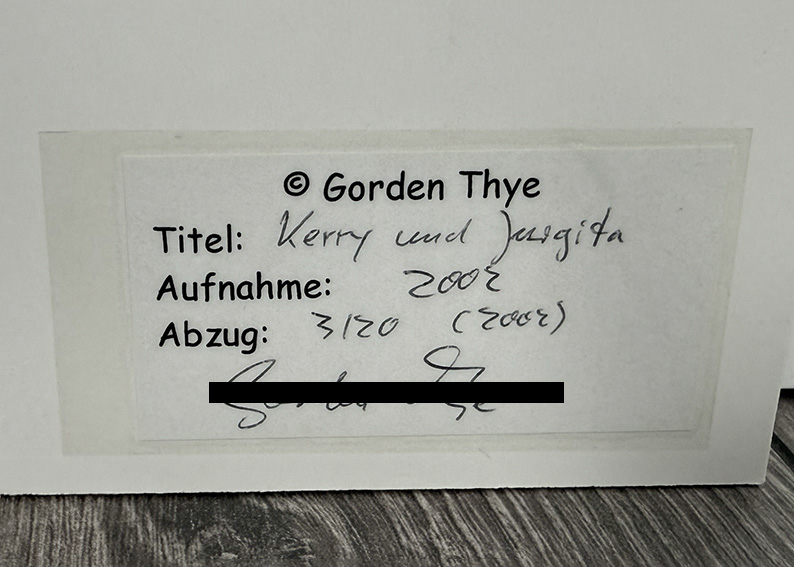 © Gorden Thye
Titel: Kerry und Jurgita
Aufnahme: 2002
Abzug: 3/20 (2002)